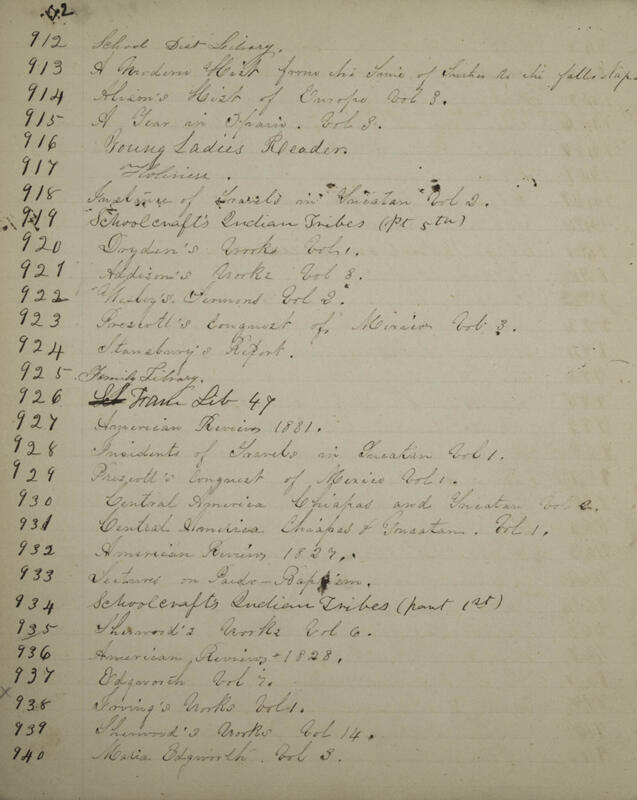 62
912 School Dist Library.
913 A Modern Hist from the Time of Luther to the falls Nap
914 Alison's Hist of Europe Vol 3.
915 A Year in Spain. Vol 3.
916 Young Ladies Reader.
917 Holiness.
918 of Travels in Yucatan Vol 2.
919 Schoolcraft's Indian Tribes (Pt 5th)
920 Dryden's Works Vol 1.
921 Addison's Works Vol 3.
922 Wesley's Sermons Vol 2.
923 Prescott's Conquest of Mexico Vol 3.
924 Stansbury's Report.
925 Family Library.
926 Fam Lib 47
927 American Review 1881.
928 Insidents of Travels in Yucatan Vol 1.
929 Prescott's Conquest of Mexico Vol 1.
930 Central America Chiapas and Yucatan Vol 2.
931 Central America Chiapas & Yucatan. Vol 1.
932 American Review 1827.
933 Lectures on Paedo-Baptism.
934 Schoolcraft's Indian Tribes (part 1st)
935 Sherwood's Works Vol 6.
936 American Review 1828.
937 Edgworth Vol 7.
938 Irving's Works Vol 1.
939 Sherwood's Works Vol 14.
940 Maria Edgworth. Vol 3.